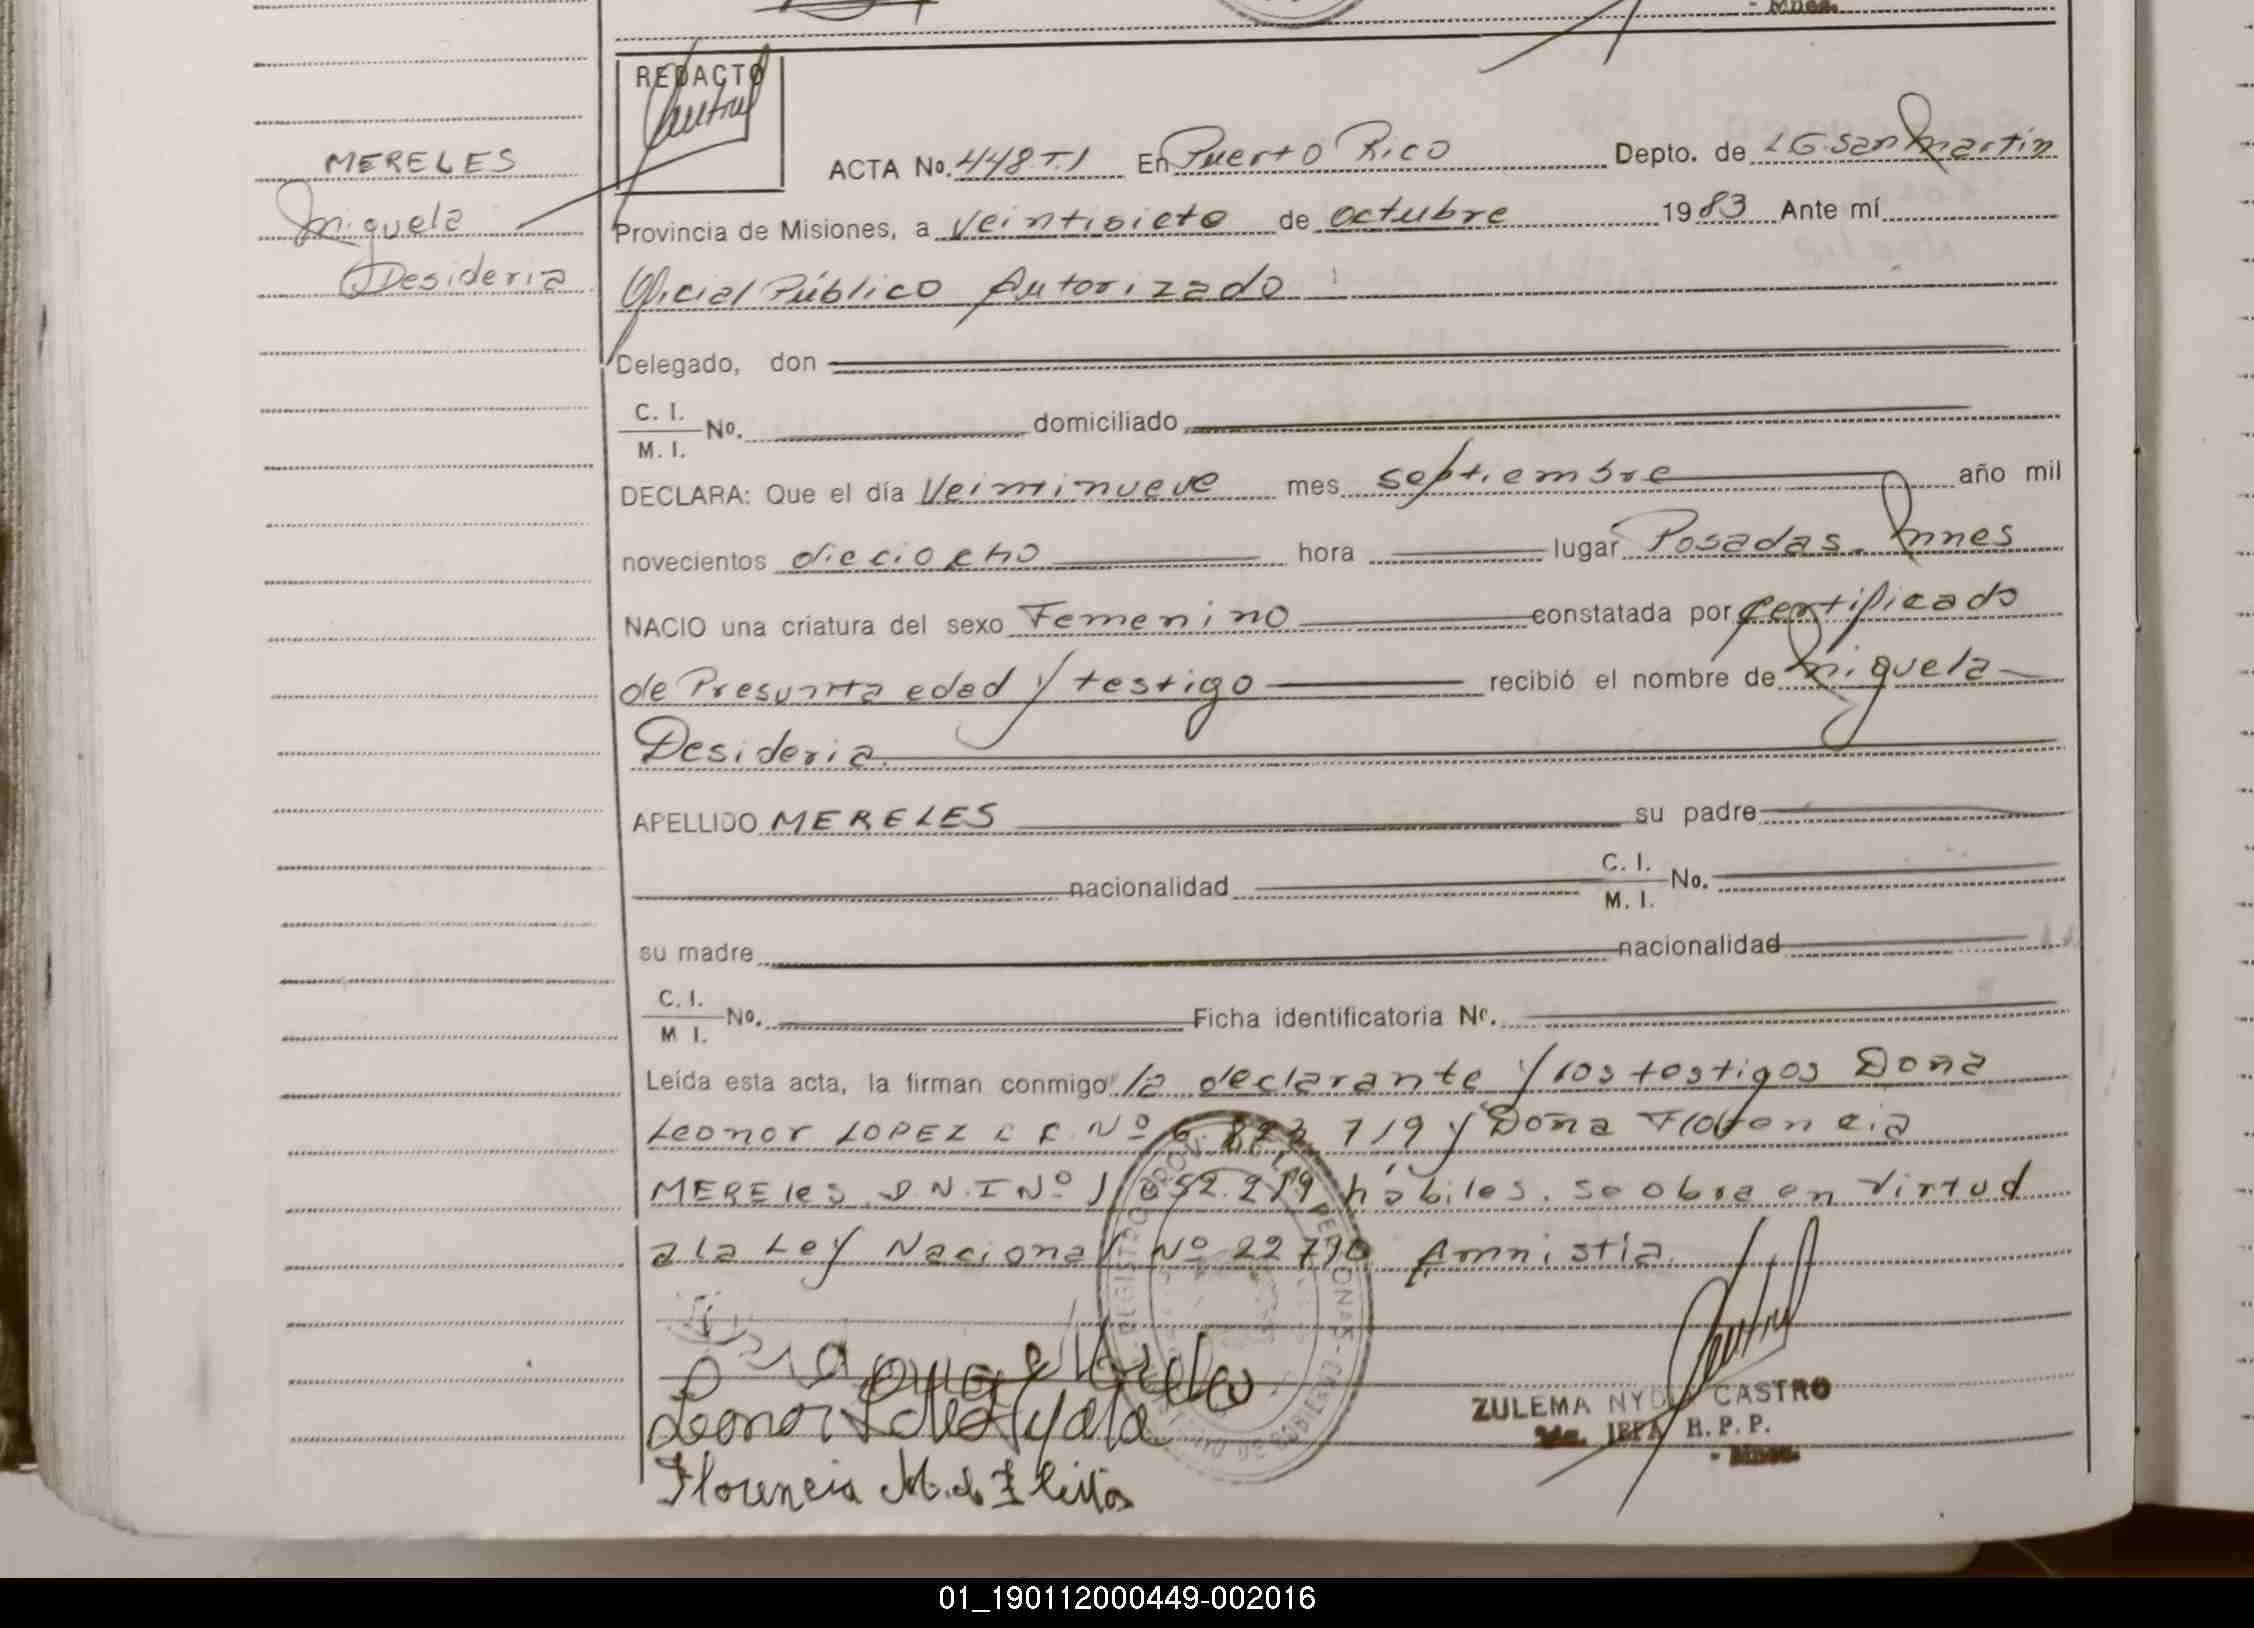 - Mnes.
REDACTO
MERELES
Miguela
Desideria
ACTA No. 448 T.I En Puerto Rico Depto. de LG.San Martín
Provincia de Misiones, a Veintisiete de octubre 1983 Ante mí
Oficial Público Autorizado
Delegado, don
C. I.
M. I. No. domiciliado
DECLARA: Que el día Veintinueve mes septiembre año mil
novecientos dieciocho hora lugar Posadas. Mnes
NACIO una criatura del sexo Femenino constatada por certificado
de Presunta edad y testigo recibió el nombre de Miguela
Desideria.
APELLIDO MERELES su padre
nacionalidad C. I.
M. I. No.
su madre nacionalidad
C. I.
M I. No. Ficha identificatoria No.
Leída esta acta, la firman conmigo la declarante y los testigos Doña
Leonor LOPEZ L C. Nº 719 y Doña Florencia
MERELES D.N.I Nº 1 652.219 hábiles. se obra en Virtud
a la Ley Nacional Nº 22790 Amnistia.
Leonor Ayala
Florencia M. de Fleitas
ZULEMA NYDIA CASTRO
JEFA R. P. P.
- Mnes.
01_190112000449-002016